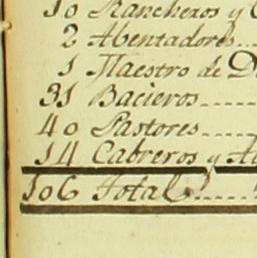 10 Rancheros y
2 Abentadores...
1 Maestro de
31 Bacieros----
40 Pastores----
14 Cabreros y
106 Total.....